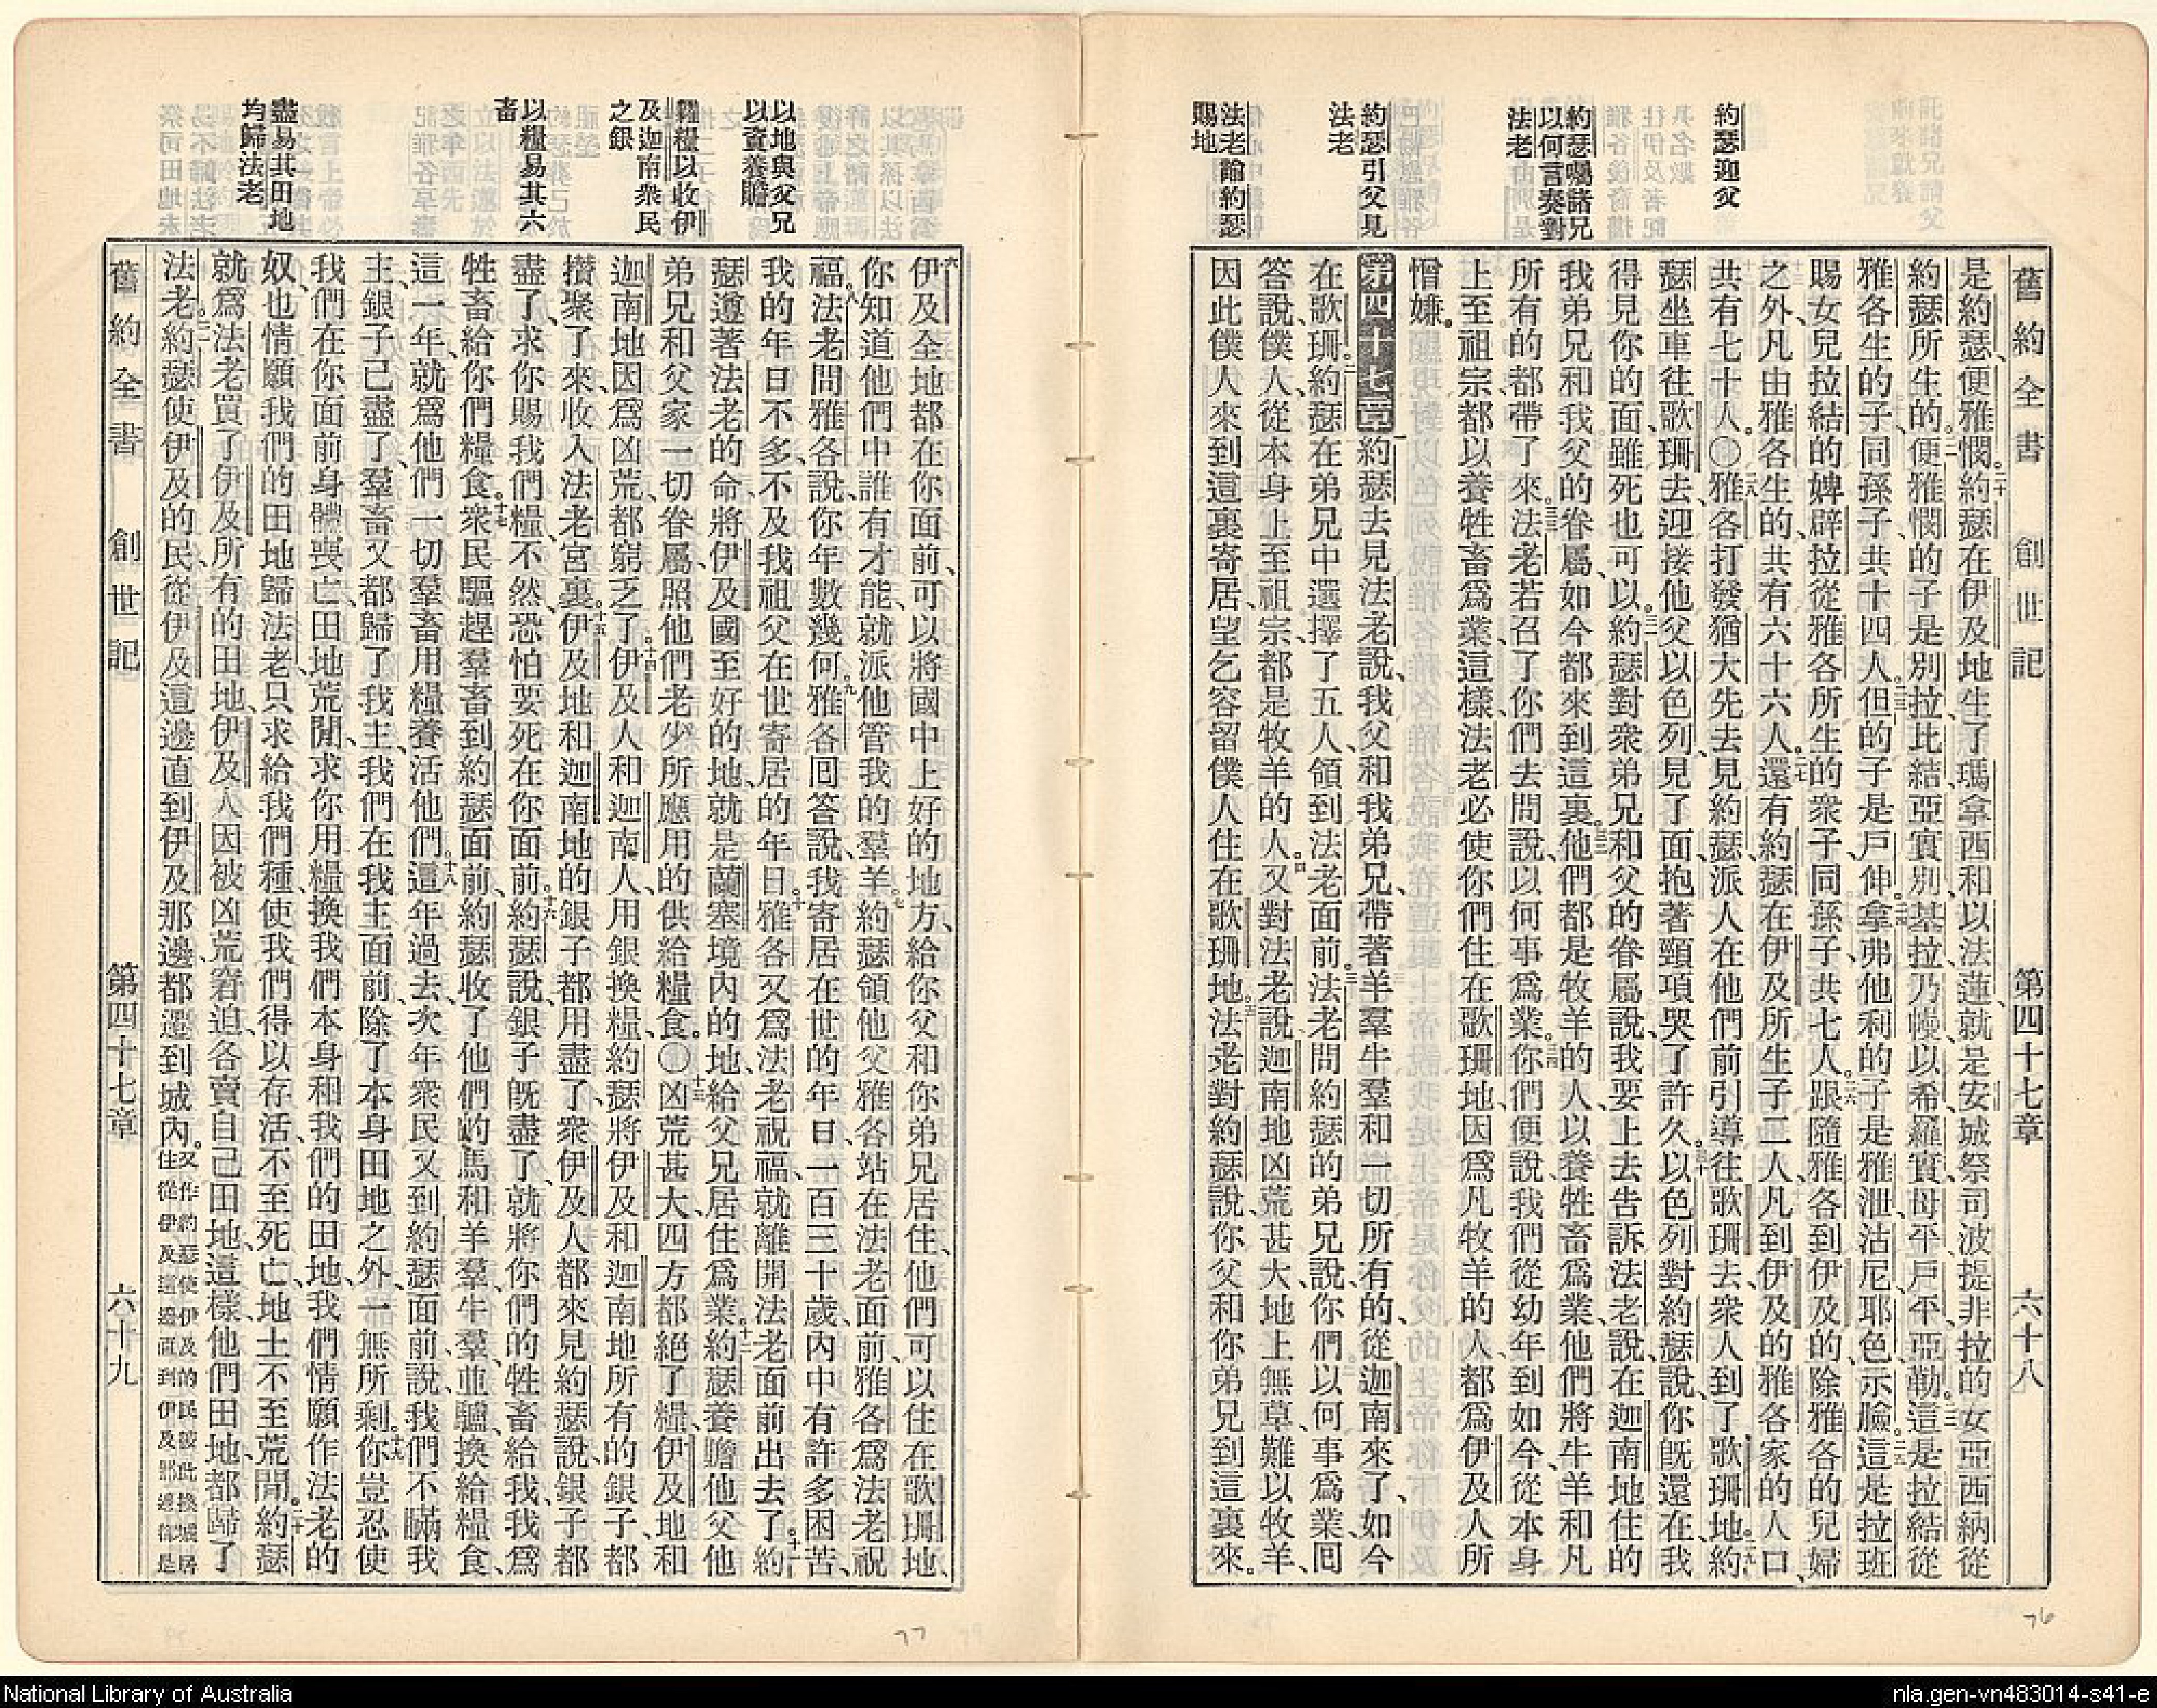 舊約全書 創世記 第四十七章 六十八
約瑟迎父
約瑟囑諸兄
以何言奏對
法老
約瑟引父見
法老
法老諭約瑟
賜地
是約瑟、便雅憫。二十約瑟在伊及地生了瑪拿西和以法蓮、就是安城祭司波提非拉的女亞西納從
約瑟所生的。二一便雅憫的子是別拉、比結、亞實別、基拉、乃幔、以希、羅實、母平、戶平、亞勒。二二這是拉結從
雅各生的子、同孫子共十四人。二三但的子是戶伸。二四拿弗他利的子是雅泄、沽尼、耶色、示臉。二五這是拉班
賜女兒拉結的婢辟拉從雅各所生的衆子、同孫子共七人。二六跟隨雅各到伊及的、除雅各的兒婦
之外、凡由雅各生的、共有六十六人。二七還有約瑟在伊及所生子二人、凡到伊及的雅各家的人口、
共有七十人。〇二八雅各打發猶大先去見約瑟、派人在他們前引導往歌珊去、衆人到了歌珊地。二九約
瑟坐車往歌珊去、迎接他父以色列、見了面、抱著頸項哭了許久。三十以色列對約瑟說、你旣還在、我
得見你的面、雖死也可以。三一約瑟對衆弟兄和父的眷屬說、我要上去告訴法老、說、在迦南地住的
我弟兄和我父的眷屬、如今都來到這裏。三二他們都是牧羊的人、以養牲畜爲業、他們將牛羊和凡
所有的都帶了來。三三法老若召了你們去、問說、以何事爲業。三四你們便說、我們從幼年到如今、從本身
上至祖宗、都以養牲畜爲業、這樣法老必使你們住在歌珊地、因爲凡牧羊的人、都爲伊及人所
憎嫌。
第四十七章 一約瑟去見法老說、我父和我弟兄、帶著羊羣牛羣和一切所有的、從迦南來了、如今
在歌珊。二約瑟在弟兄中選擇了五人、領到法老面前。三法老問約瑟的弟兄說、你們以何事爲業、囘
答說、僕人、從本身上至祖宗都是牧羊的人。四又對法老說、迦南地凶荒甚大、地上無草、難以牧羊、
因此僕人來到這裏寄居、望乞容留僕人住在歌珊地。五法老對約瑟說、你父和你弟兄到這裏來。
以地與父兄
以資養贍
糴糧以收伊
及迦南衆民
之銀
以糧易其六
畜
盡易其田地
均歸法老
六伊及全地都在你面前、可以將國中上好的地方、給你父和你弟兄居住、他們可以住在歌珊地、
你知道他們中誰有才能、就派他管我的羣羊。七約瑟領他父雅各站在法老面前、雅各爲法老祝
福。八法老問雅各說、你年數幾何。九雅各囘答說、我寄居在世的年日、一百三十歲內中有許多困苦、
我的年日不多、不及我祖父在世寄居的年日。十雅各又爲法老祝福、就離開法老面前出去了。十一約
瑟遵著法老的命、將伊及國至好的地、就是蘭塞境內的地、給父兄居住爲業。十二約瑟養贍他父他
弟兄和父家一切眷屬、照他們老少所應用的供給糧食。〇十三凶荒甚大、四方都絕了糧、伊及地和
迦南地因爲凶荒、都窮乏了。十四伊及人和迦南人、用銀換糧、約瑟將伊及和迦南地所有的銀子、都
攢聚了來、收入法老宮裏。十五伊及地和迦南地的銀子都用盡了、衆伊及人都來見約瑟說、銀子都
盡了、求你賜我們糧、不然、恐怕要死在你面前。十六約瑟說、銀子旣盡了、就將你們的牲畜給我、我爲
牲畜給你們糧食。十七衆民驅趕羣畜到約瑟面前、約瑟收了他們的馬和羊羣、牛羣、並驢、換給糧食、
這一年、就爲他們一切羣畜用糧養活他們。十八這年過去、次年衆民又到約瑟面前說、我們不瞞我
主、銀子已盡了、羣畜又都歸了我主、我們在我主面前、除了本身田地之外、一無所剩。十九你豈忍使
我們在你面前身體喪亡、田地荒閒、求你用糧換我們本身和我們的田地、我們情願作法老的
奴、也情願我們的田地歸法老、只求給我們種、使我們得以存活、不至死亡、地土不至荒閒。二十約瑟
就爲法老買了伊及所有的田地、伊及人因被凶荒窘迫、各賣自己田地、這樣、他們田地、都歸了
法老。二一約瑟使伊及的民從伊及這邊直到伊及那邊、都遷到城內。又作約瑟使伊及的民彼此換城居
住從伊及這邊直到伊及那邊皆是
舊約全書 創世記 第四十七章 六十九
76
77
National Library of Australia
nla.gen-vn483014-s41-e